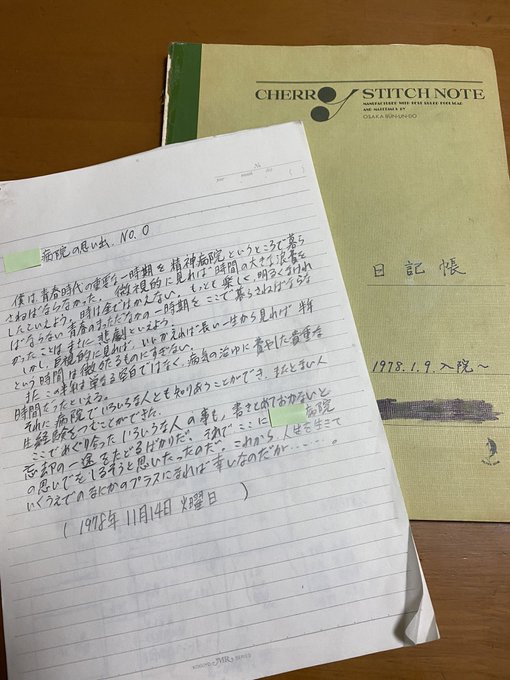 CHERRY STITCH NOTE
MANUFACTURED WITH BEST RULED FOOLSCAP
AND MATERIALS BY
OSAKA BUN-UN-DO
日記帳
1978.1.9.入院～
No.
病院の思い出. NO.0
僕は、青春時代の重要な一時期を精神病院というところで暮ら
さねばならなかった。微視的に見れば時間の大きな浪費を
したといえよう。時は金ではかえない。もっとも楽しく、明るくなけれ
ばならない青春のまっただなかの一時期をここで暮らさねばならな
かったことは、まさに悲劇といえよう。
しかし、巨視的に見れば、いいかえれば長い一生から見れば、半年
という時間は微々たるものにすぎない。
また、この半年は単なる空白ではなく、病気の治ゆに費やした貴重な
時間だったといえる。
それに病院でいろいろな人とも知りあうことができ、またとない人
生経験をつむことができた。
ここでめぐり合ったいろいろな人の事も、書きとめておかないと
忘却の一途をたどるばかりだ。それでここに 病院
の思いでをしるそうと思いたったのだ。これから人生を生きて
いくうえでのなにかのプラスになれば幸いなのだが……。
(1978年11月14日 火曜日)